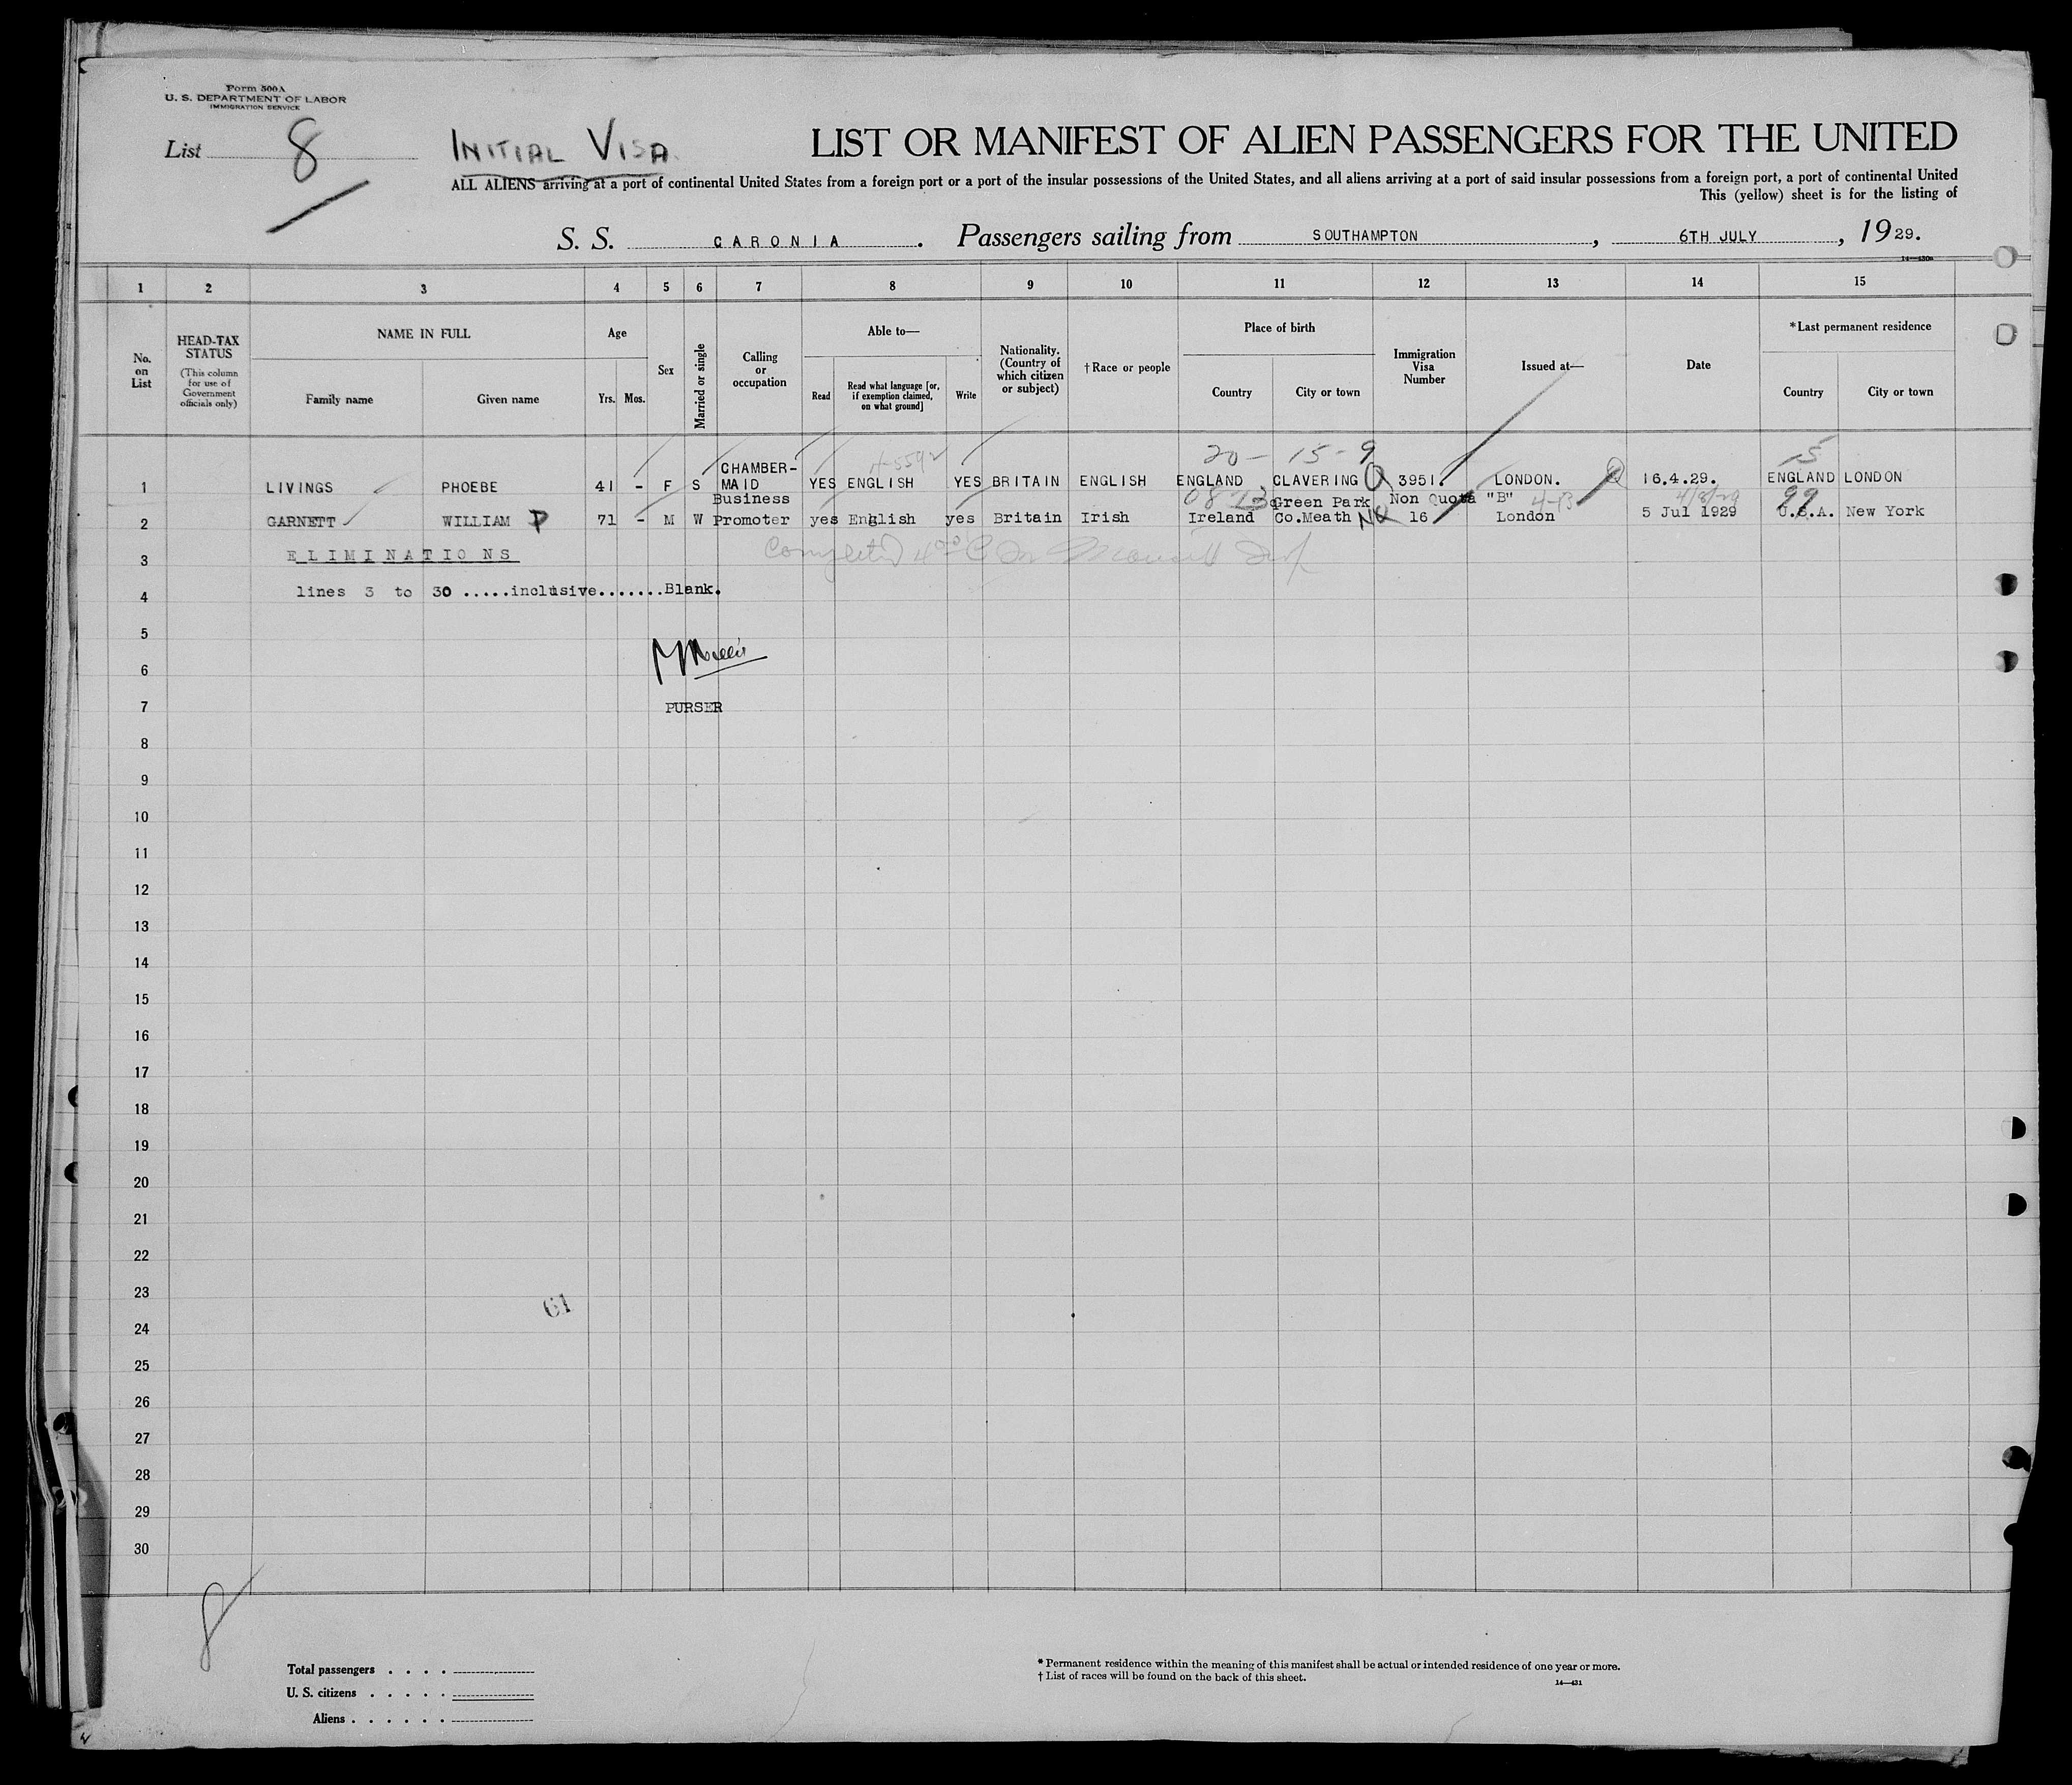 Form 500A
U. S. DEPARTMENT OF LABOR
IMMIGRATION SERVICE
List 8
INITIAL VISA.
LIST OR MANIFEST OF ALIEN PASSENGERS FOR THE UNITED
ALL ALIENS arriving at a port of continental United States from a foreign port or a port of the insular possessions of the United States, and all aliens arriving at a port of said insular possessions from a foreign port, a port of continental United
This (yellow) sheet is for the listing of
S. S. CARONIA. Passengers sailing from SOUTHAMPTON, 6TH JULY, 1929.
1 2 3 4 5 6 7 8 9 10 11 12 13 14 15
No. on List
HEAD-TAX STATUS
(This column for use of Government officials only)
NAME IN FULL
Family name Given name
Age
Yrs. Mos.
Sex
Married or single
Calling or occupation
Able to—
Read Read what language [or, if exemption claimed, on what ground] Write
Nationality. (Country of which citizen or subject)
†Race or people
Place of birth
Country City or town
Immigration Visa Number
Issued at—
Date
*Last permanent residence
Country City or town
20- 15-9 15
1 LIVINGS PHOEBE 41 - F S CHAMBER-MAID YES ENGLISH YES BRITAIN ENGLISH ENGLAND CLAVERING Q 3951 LONDON. 16.4.29. ENGLAND LONDON
2 GARNETT WILLIAM P 71 - M W Business Promoter yes English yes Britain Irish Ireland Green Park Co.Meath NQ Non Quota "B" 16 London 5 Jul 1929 U.S.A. New York
99
3 ELIMINATIONS
4 lines 3 to 30 .....inclusive.......Blank.
5
6
7 PURSER
8
9
10
11
12
13
14
15
16
17
18
19
20
21
22
23
61
24
25
26
27
28
29
30
8
Total passengers . . . .
U. S. citizens . . . . .
Aliens . . . . . .
* Permanent residence within the meaning of this manifest shall be actual or intended residence of one year or more.
† List of races will be found on the back of this sheet.
14—431